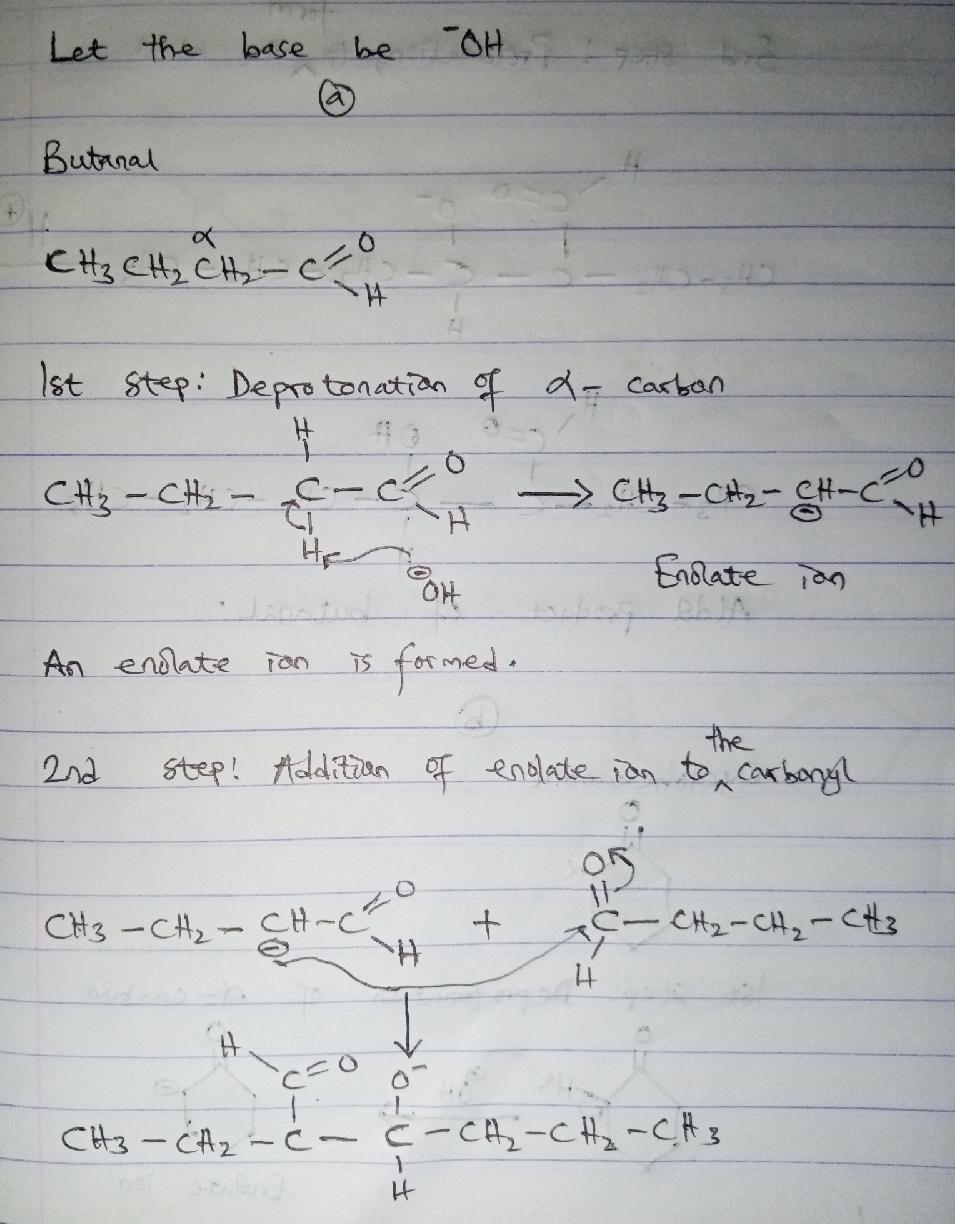 Let the base be ⁻OH
ⓐ
Butanal
α
CH₃ CH₂ CH₂ – C
O
H
1st step: Deprotonation of α – carbon
H
CH₃ – CH₂ – C – C
O
H
H
⊖OH
→ CH₃ – CH₂ – CH – C
⊖
O
H
Enolate ion
An enolate ion is formed.
2nd step: Addition of enolate ion to the carbonyl
CH₃ – CH₂ – CH – C
⊖
O
H
+
O
C – CH₂ – CH₂ – CH₃
H
H
C=O
O⁻
CH₃ – CH₂ – C – C – CH₂ – CH₂ – CH₃
H